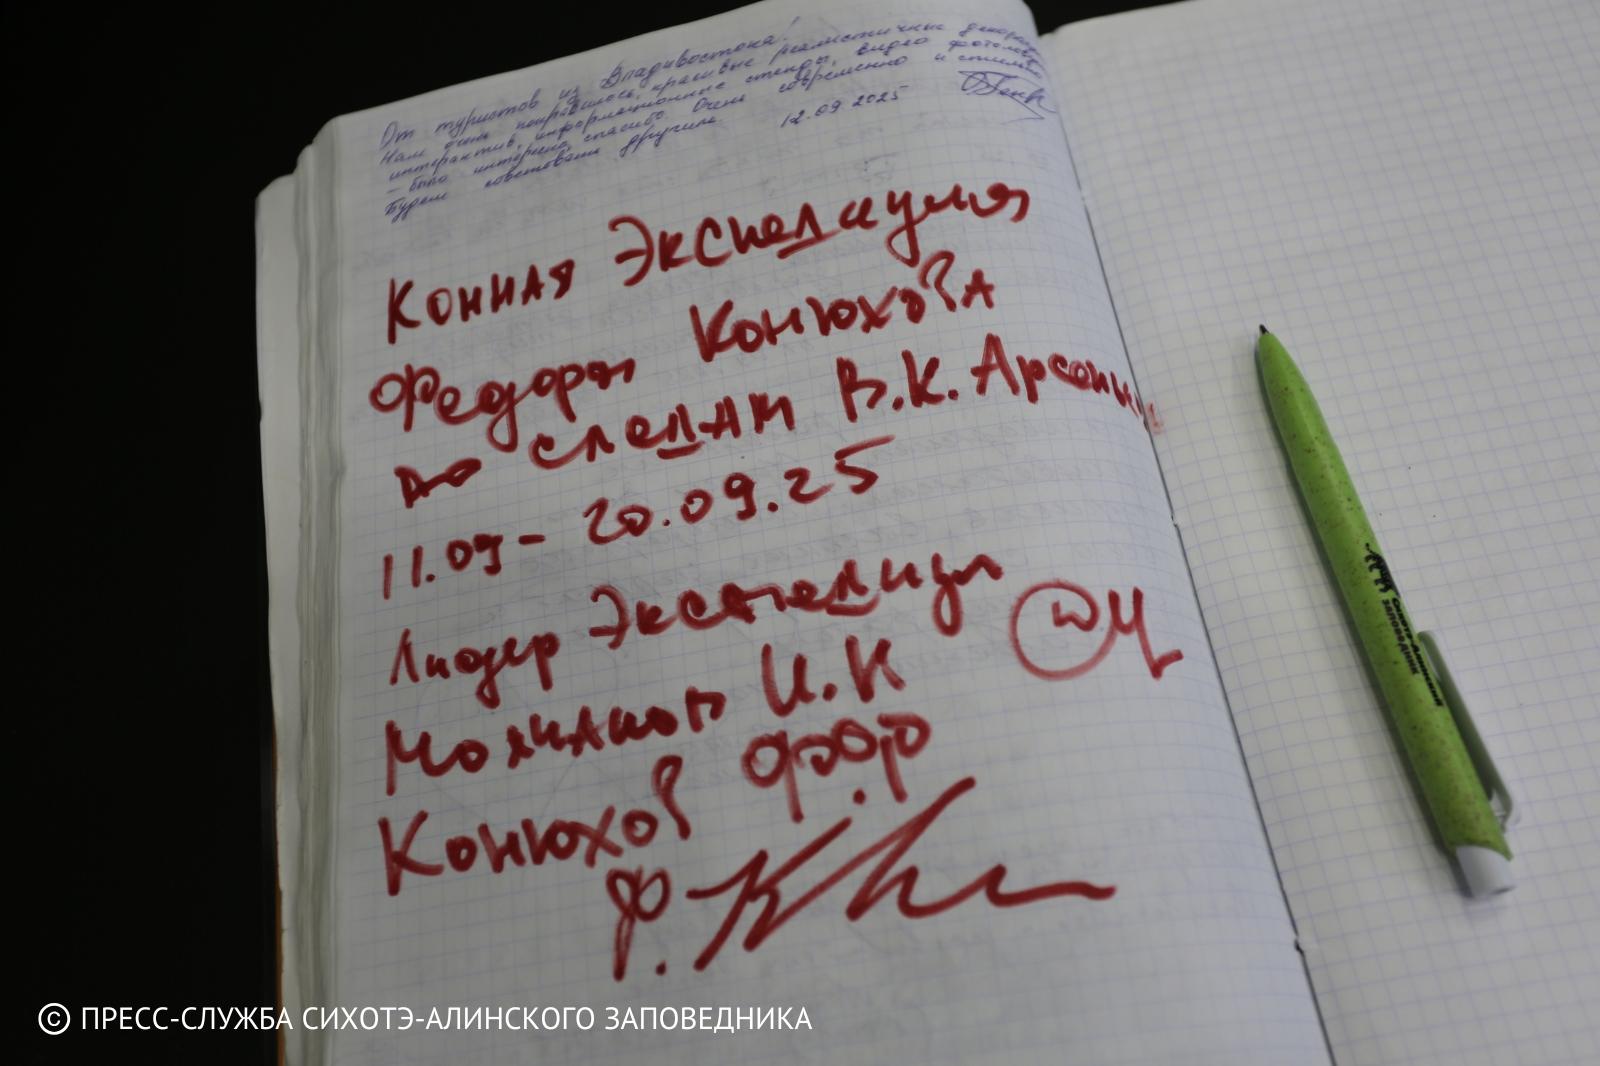 От туристов из Владивостока!
Нам очень понравилось, красивые реалистичные декорации,
интерактив, информационные стенды, видео фотоловушек
– было интересно, спасибо. Очень современно и стильно
Будем советовать другим.
12.09.2025
Конная Экспедиция
Федора Конюхова
по следам В.К. Арсеньева
11.09 – 20.09.25
Лидер Экспедиции
Молчанов И.К
Конюхов Ф.Ф
Сихотэ-Алинский
ЗАПОВЕДНИК
© ПРЕСС-СЛУЖБА СИХОТЭ-АЛИНСКОГО ЗАПОВЕДНИКА